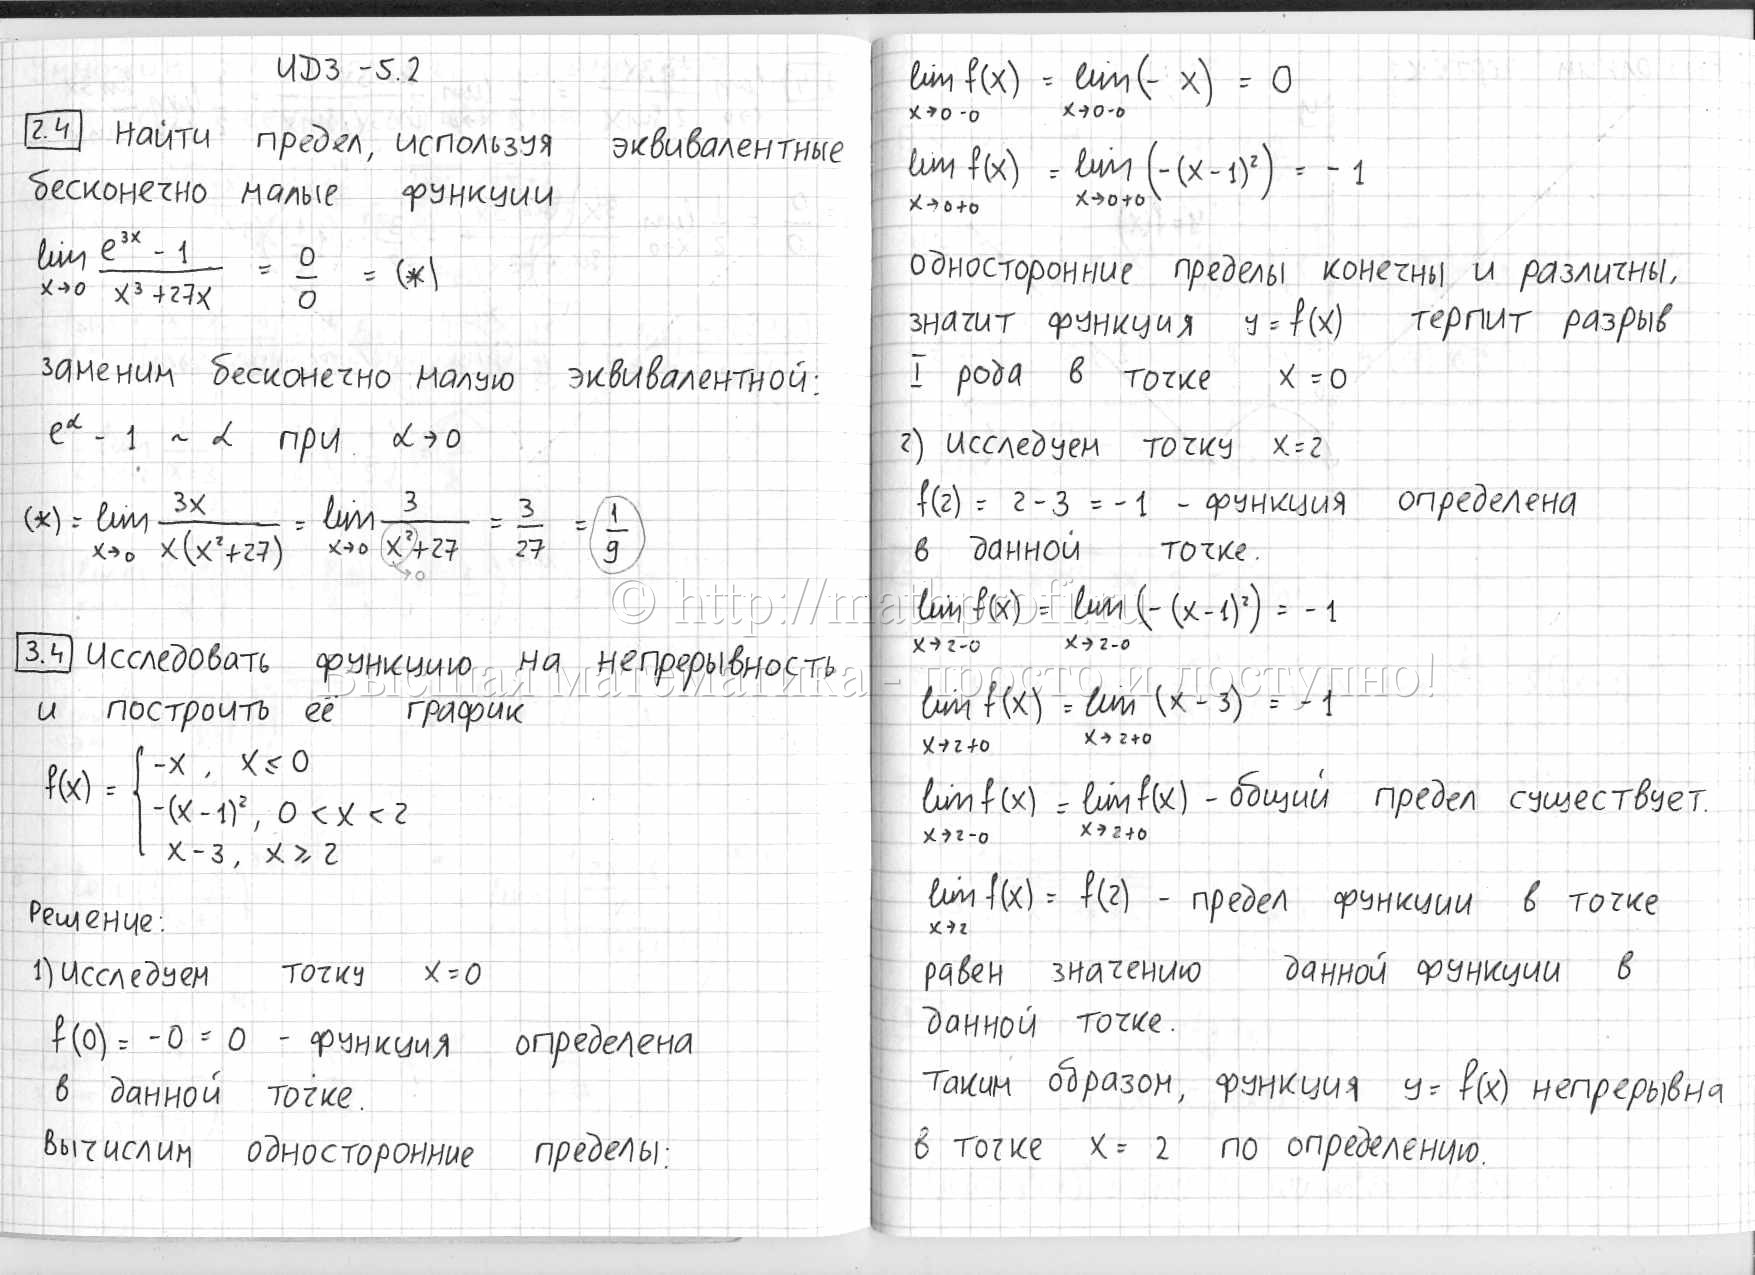 ИДЗ - 5.2
2.4 Найти предел, используя эквивалентные
бесконечно малые функции
lim x→0 (e^3x - 1)/(x³+27x) = 0/0 = (*)
заменим бесконечно малую эквивалентной:
e^α - 1 ~ α при α→0
(*) = lim x→0 3x/(x(x²+27)) = lim x→0 3/(x²+27) = 3/27 = 1/9
x→0
3.4 Исследовать функцию на непрерывность
и построить её график
f(x) = { -x, x ≤ 0
-(x-1)², 0 < x < 2
x-3, x ≥ 2
Решение:
1) Исследуем точку x=0
f(0) = -0 = 0 - функция определена
в данной точке.
Вычислим односторонние пределы:
lim x→0-0 f(x) = lim x→0-0 (-x) = 0
lim x→0+0 f(x) = lim x→0+0 (-(x-1)²) = -1
односторонние пределы конечны и различны,
значит функция y=f(x) терпит разрыв
I рода в точке x=0
2) Исследуем точку x=2
f(2) = 2-3 = -1 - функция определена
в данной точке.
© http://mathprofi.ru
lim x→2-0 f(x) = lim x→2-0 (-(x-1)²) = -1
Высшая математика - просто и доступно!
lim x→2+0 f(x) = lim x→2+0 (x-3) = -1
lim x→2-0 f(x) = lim x→2+0 f(x) - общий предел существует.
lim x→2 f(x) = f(2) - предел функции в точке
равен значению данной функции в
данной точке.
Таким образом, функция y=f(x) непрерывна
в точке x=2 по определению.